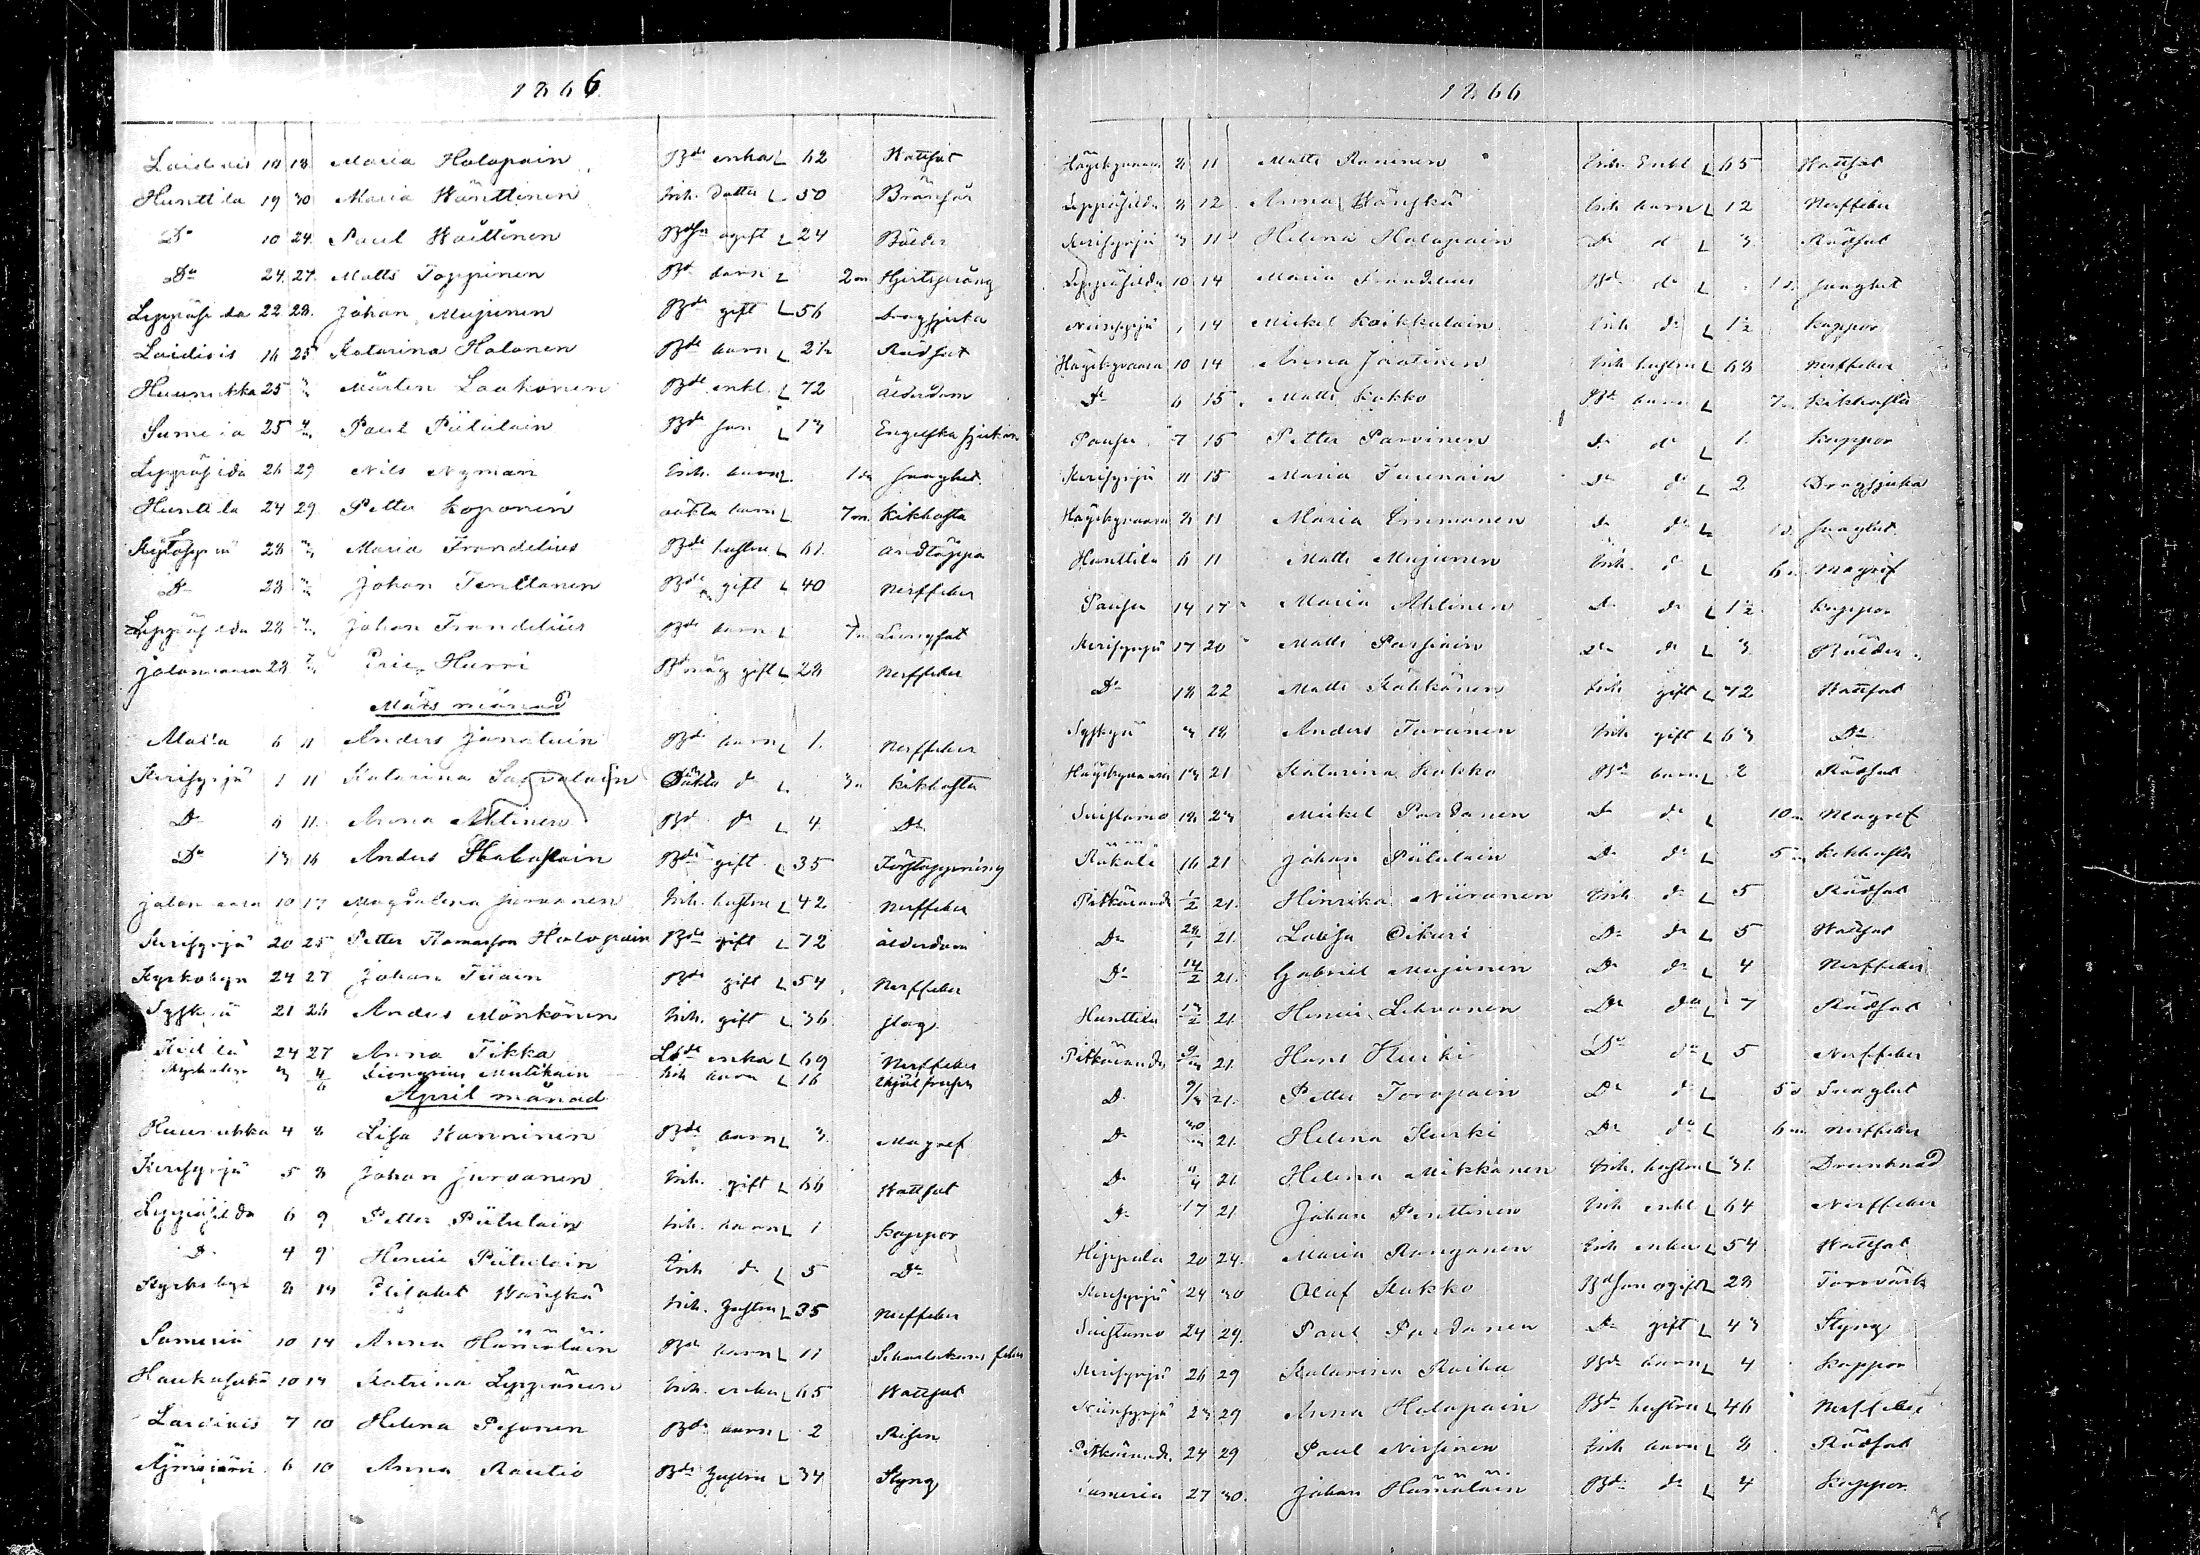 1866
Laidinis 10 18 Maria Holopain Bde enka L 62 Wattsot
Hunttila 19 30 Maria Wänttinen Inh. dotter L 50 Bränsår
Do 10 24 Paul Waittinen ogift L 24 Bölder
Do 24 27 Matts Toppinen Bd barn L 2 m Hjertsprång
Leppäsilda 22 28 Johan Mujunen Bde gift L 56
Laidinis 16 25 Katarina Holonen Bde barn L 2½ Rödsot
Huunukka 25 " Mårten Laakonen Bde enkl. L 72 ålderdom
Sumeria 25 " Paul Piitulain Bde son L 13 Engelska sjukan
Leppäsilda 26 29 Nils Nyman Inh. barn L 1 d Svaghet
Hunttila 24 29 Petter Koponen oäkta barn L 7 m Kikhosta
28 " Maria Frondelius Bde hustru L 61 andtäppa
Do 28 " Johan Tenttanen Bde gift L 40 Nerffeber
Leppäsilda 28 " Johan Frondelius Bde barn L 7 m Lungsot
Jalonvaara 28 " Eric Hurri Bd måg gift L 28 Nerffeber
Mars månad
6 11 Anders Janatuin Bde barn L 1 Nerffeber
Kerisyrjä 1 11 Katarina oäkta do L 3 m kikhosta
Do 6 11 Anna Ahtinen Bd do L 4 Do
Do 13 16 Anders Holopain Bde gift L 35 Förstoppning
Jalonvaara 10 17 Magdalena Jurvanen Inh. hustru L 42 Nerffeber
Kerisyrjä 20 25 Petter Thomasson Holopain Bde gift L 72 ålderdom
Kyrkobyn 24 27 Johan Tiiain Bde gift L 54 Nerffeber
Syskyä 21 26 Anders Mönkönen Inh. gift L 36 slag
24 27 Anna Tikka enka L 69 Nerffeber
Kyrkobyn 3 4/6 Dionysius Mutikain Inh barn L 16 ihjälfrusen
April månad
Huunukka 4 8 Lisa Wanninen Bde barn L 3 Magref
Kerisyrjä 5 8 Johan Jurvanen Inh. gift L 66 Wattsot
Leppäsilda 6 9 Petter Piitulain Inh. barn L 1 Koppor
D 4 9 Henric Piitulain Inh do L 5 Do
Kyrkobyn 8 14 Elisabet Wänskä Inh. hustru L 35 Nerffeber
Sumeria 10 14 Anna Hämäläin Bde barn L 11 Scharlakans feber
10 14 Katrina Leppänen Inh. enka L 65 Wattsot
Laidinis 7 10 Helena Pesonen Bde barn L 2 Risen
6 10 Anna Rautio Bde hustru L 34 Styng
1866
Häyskynvaara 8 11 Matts Raninen Inh. Enkl L 65 Wattsot
Leppäsilda 8 12 Anna Wänskä Inh barn L 12 Nerffeber
Kerisyrjä 3 11 Helena Holopain Do do L 3 Rödsot
Leppäsilda 10 14 Maria Frondelius Bd do L 1 d. Svaghet
Niinisyrjä 1 14 Mickel Kaikkulain Inh do L 1½ Koppor
Häyskynvaara 10 14 Anna Jäätinen Inh hustru L 68 Nerffeber
Do 6 15 Matts Kukko Bde barn L 7 m Kikhosta
Pausu 7 15 Petter Parvinen Do do L 1 Koppor
Kerisyrjä 11 15 Maria Turunain Do do L 2 Dragsjuka
Häyskynvaara 8 11 Maria Immonen do do L 1 d. Svaghet
Hunttila 6 11 Matts Mujunen Inh. d L 6 m Magrif
Pausu 14 17 Maria Ahtinen Do do L 1½ Koppor
Kerisyrjä 17 20 Matts Parsiain Do do L 3 Bölder
Do 18 22 Matts Kähkönen Inh gift L 72 Wattsot
Syskyä 3 18 Anders Turunen Inh gift L 63 Do
Häyskynvaara 13 21 Katarina Kokko Bde barn L 2 Rödsot
Suistamo 18 23 Mickel Pardanen Do do L 10 m Magref
16 21 Johan Piitulain Do do L 5 m Kikhosta
Pitkäranda 1/2 21 Hinrika Niiranen Inh do L 5 Rödsot
Do 28/1 21 Lovisa Oikuri Do do L 5 Wattsot
Do 14/2 21 Gabriel Mujunen Do do L 4 Nerffeber
Hunttila 13/2 21 Henric Lehvonen Do do L 7 Rödsot
Pitkäranda 9/m 21 Hans Kurki Do do L 5 Nerffeber
D 9/3 21 Petter Toropain Do do L 5 d Svaghet
Do 30/m 21 Helena Kurki Do do L 6 m Nerffeber
D 11/4 21 Helena Mikkänen Inh. hustru L 31 Drunknad
Do 17 21 Johan Penttinen Inh enkl L 64 Nerffeber
Hippola 20 24 Maria Ronganen Inh enka L 54 Wattsot
Kerisyrjä 24 30 Olof Kukko Bd son ogift L 28 Torrvärk
Suistamo 24 29 Paul Pardanen Do gift L 43 Styng
Kerisyrjä 26 29 Katarina Roiha Bde barn L 4 Koppor
Niinisyrjä 23 29 Anna Holopain Bde hustru L 46 Nerffeber
Pitkäranda 24 29 Paul Nissinen Inh barn L 8 Rödsot
Sumeria 27 30 Johan Hämäläin Bde do L 4 Koppor